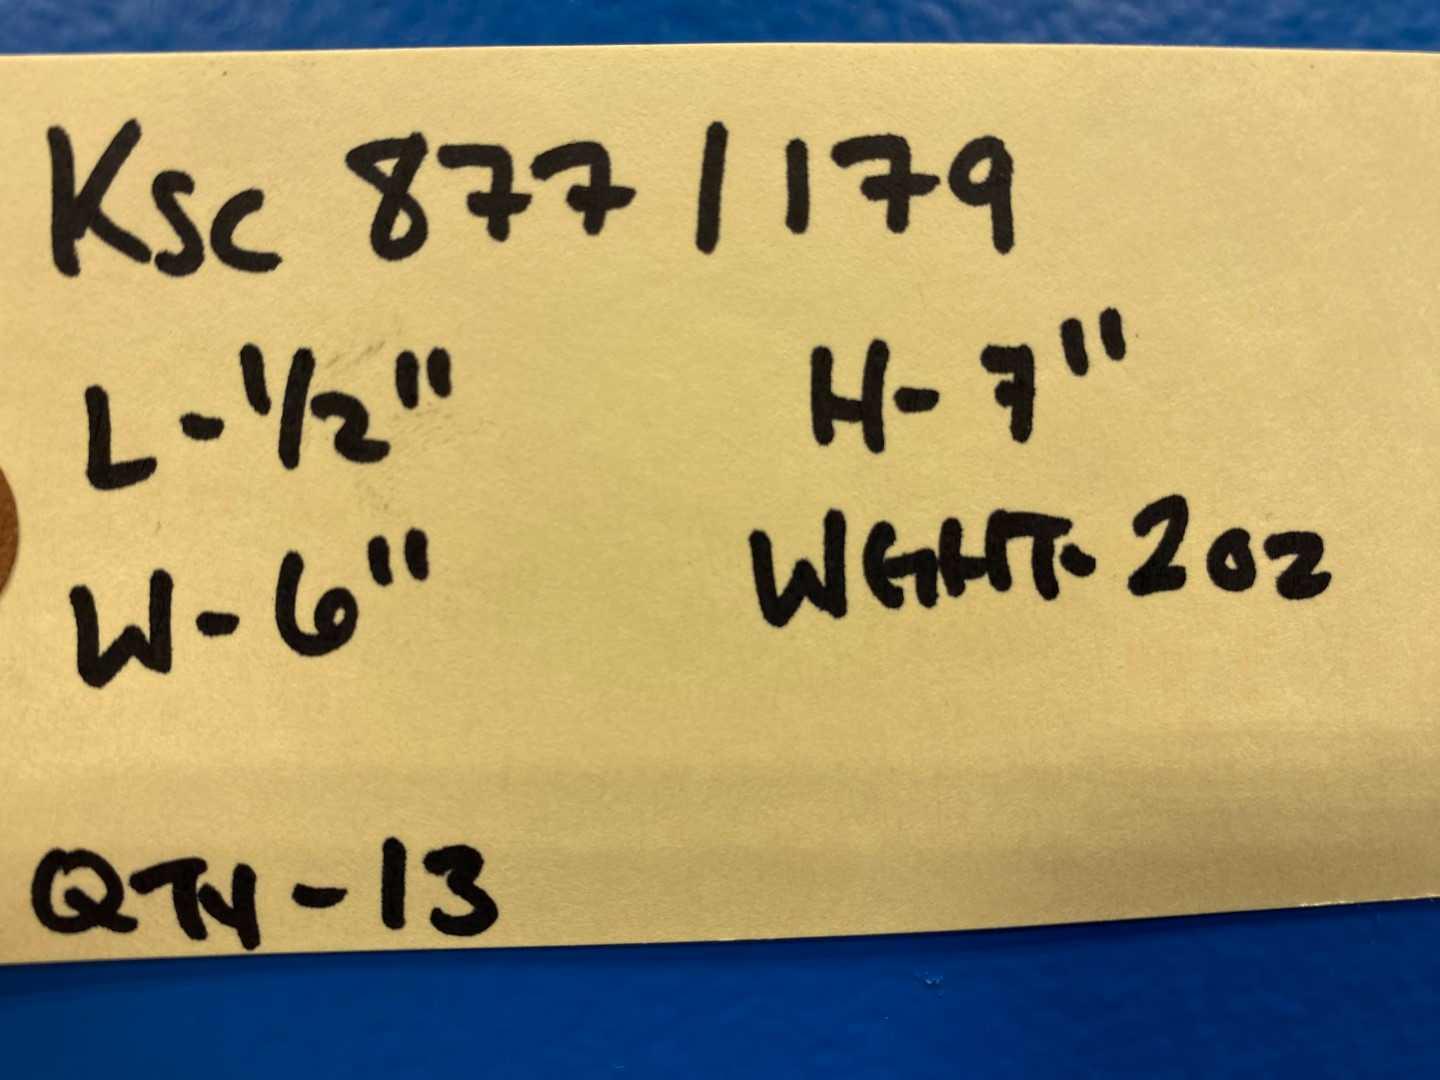 Ksc 877/179
L-1/2" H-7"
W-6" WGHT-2oz
QTY-13